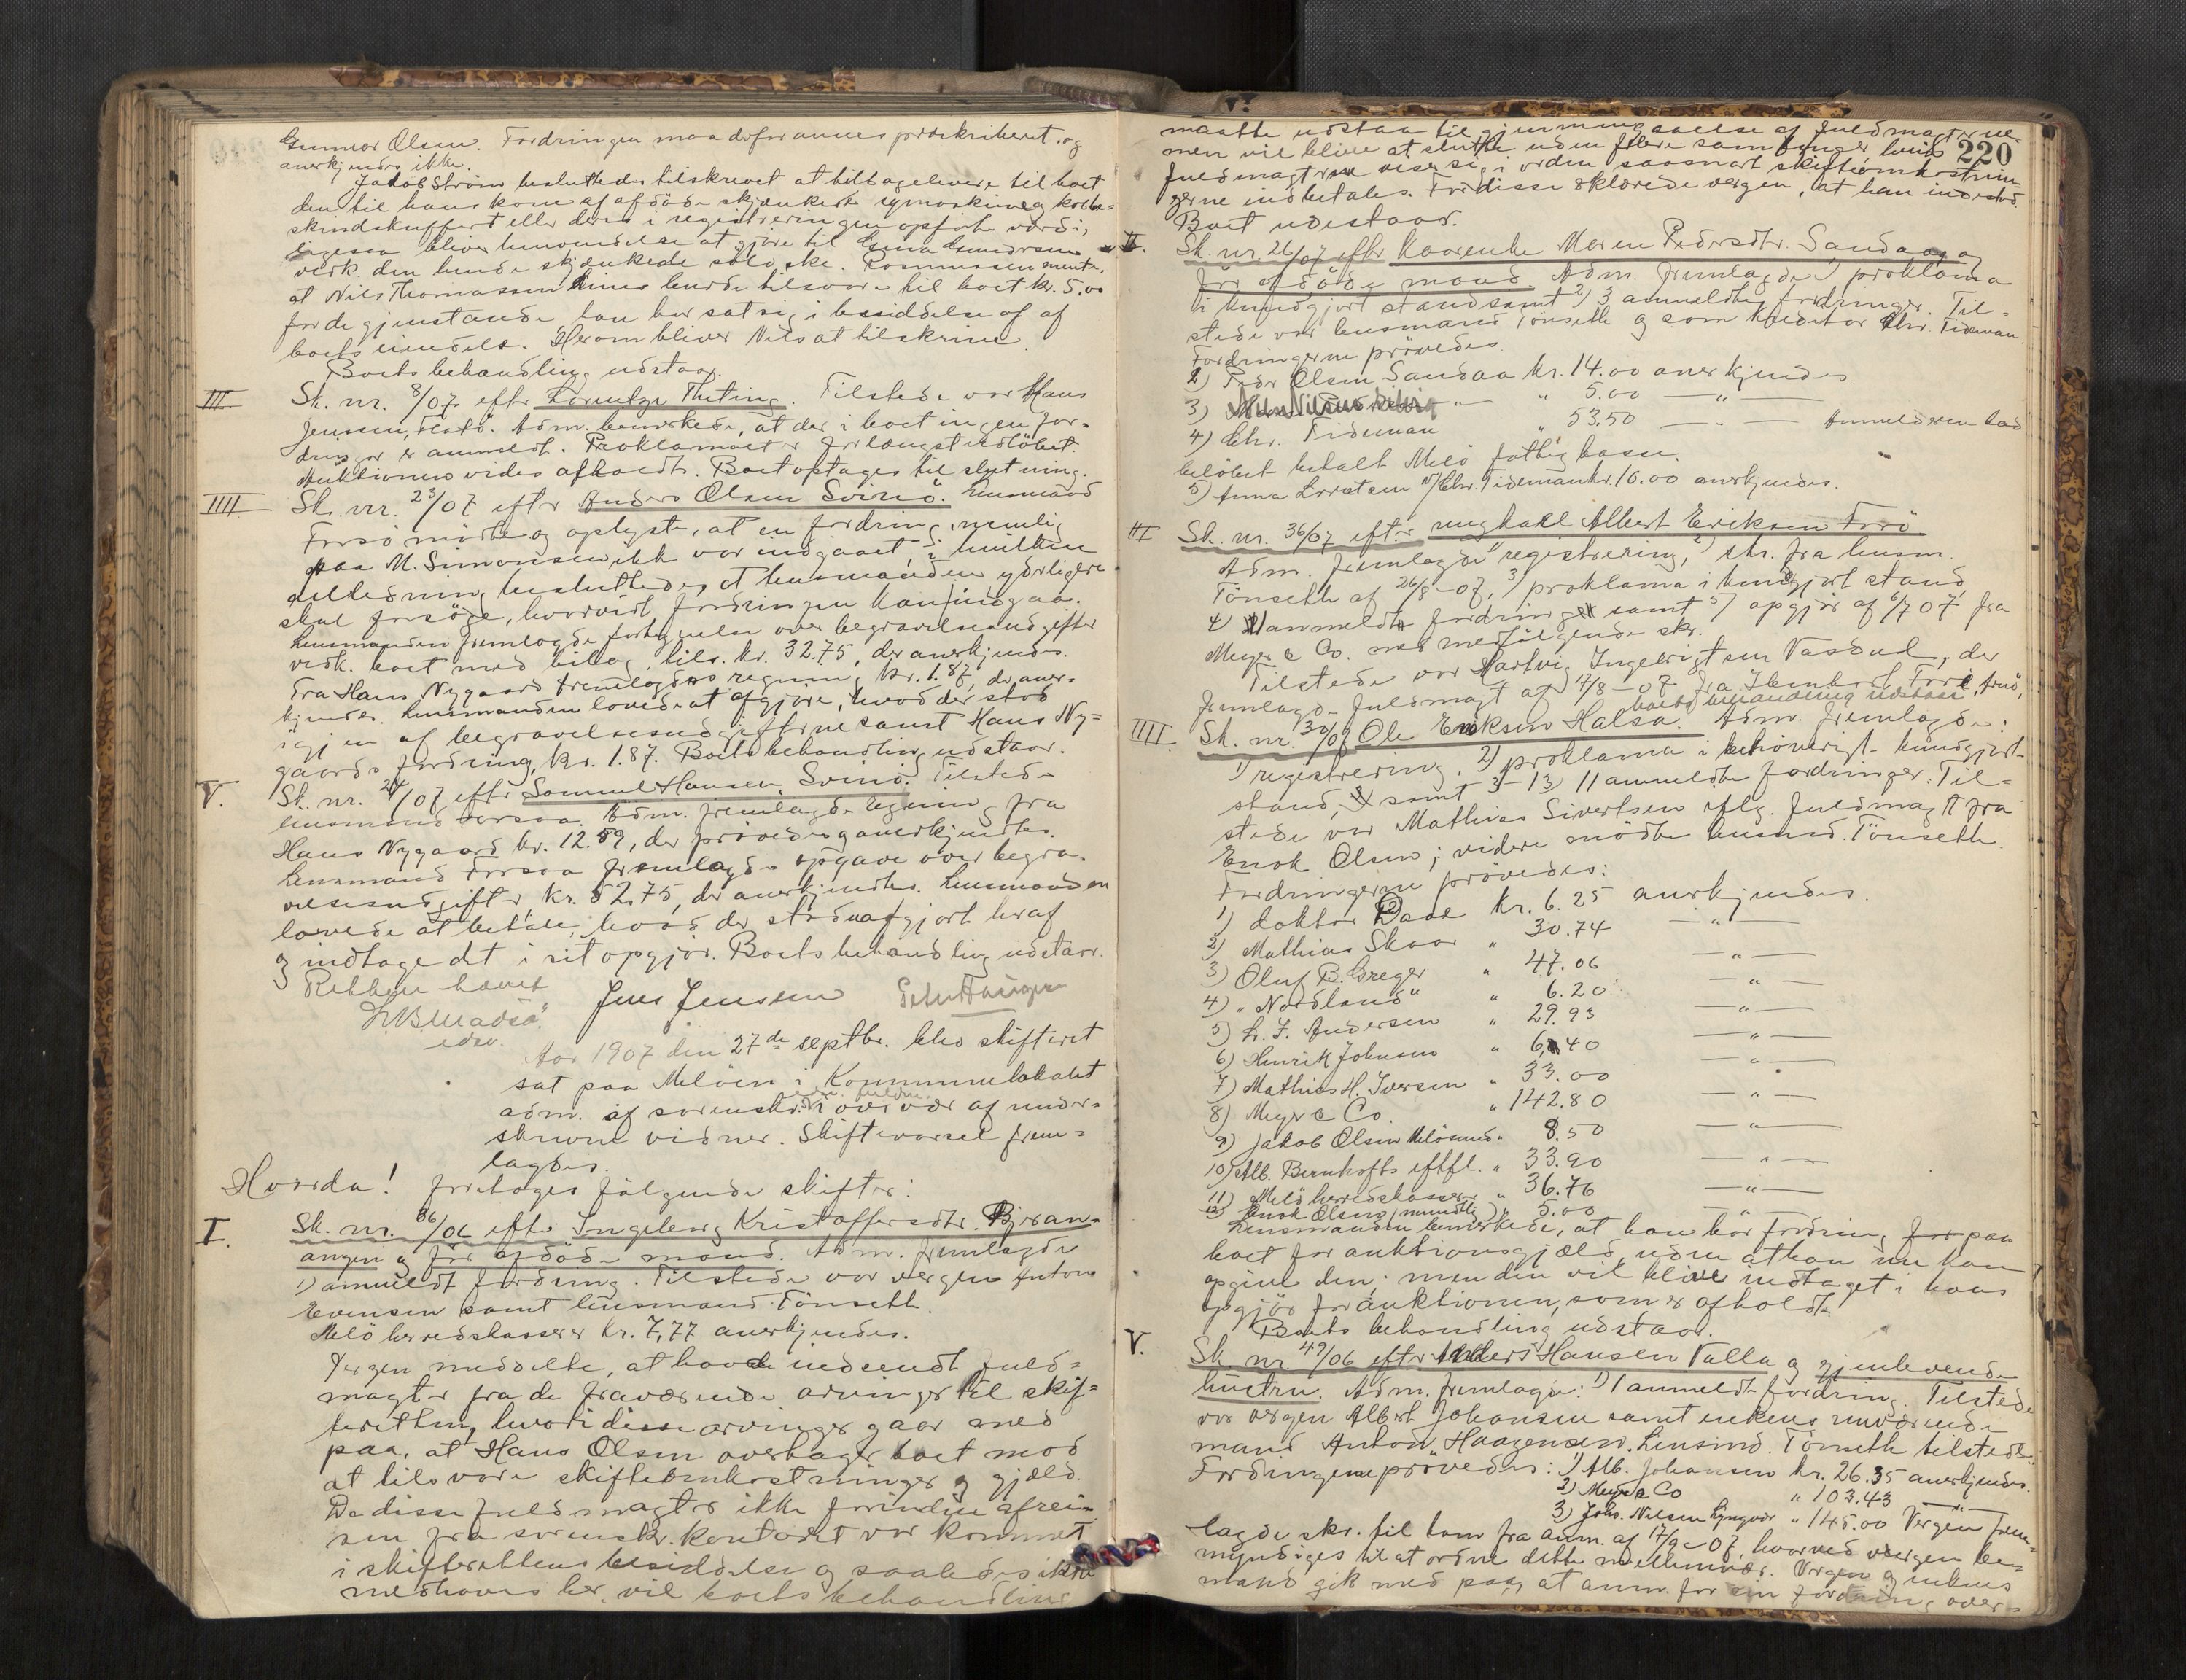 Gunnar Olsen. Fordringen maa derfor ansees præskriberet og
anerkjendes ikke.
Jakob Strøm besluttedes tilskrevet at tilbagelevere til boet
den til hans kone af afdöde skjænkede symaskine og
skindskuffert eller deres i registreringen opførte værdi,
ligesaa bliver henvendelse at gjøre til Gunda Gundersen
vedk. den hende skjænkede sølvske. Rasmussen mente,
at Nils Thomassen burde tilsvare til boet kr. 5.00
for de gjenstande han har sat sig i besiddelse af af
boets eiendele. Herom bliver Nils at tilskrive.
Boets behandling udstaar.
III Sk. nr. 8/07 efter Lorentze Theting. Tilstede var Hans
Jenssen, Melø . Adm. bemerkede, at der i boet ingen for-
dringer er anmeldt. Proklamaet er forlængst udløbet.
Auktionen vides afholdt. Boet optages til slutning.
IIII Sk. nr. 23/07 efter Anders Olsen Svinö. Lensmand
Forsö mødte og oplyste, at en fordring, nemlig
paa M. Simonsen ikke var indgaaet, i hvilken
anledning besluttedes, at lensmanden yderligere
skal forsöge, hvorvidt fordringen kan indgaa.
Lensmanden fremlagde fortegnelse over begravelsesudgifter
vedk. boet med bilag, tils. kr. 32.75, der anerkjendes.
Fra Hans Nygaard fremlagdes regning kr. 1.87, der aner-
kjendes. Lensmanden lovede at afgjøre, hvad der stod
igjen af begravelsesudgifterne samt Hans Ny-
gaards fordring, kr. 1.87. Boets behandling udstaar.
V. Sk. nr. 24/07 efter Samuel Hansen Svinö. Tilstede
lensmand Forsaa. Adm. fremlagde regning fra
Hans Nygaard kr. 12.59, der prøvedes og anerkjendtes.
Lensmand Forsaa fremlagde opgave over begra-
velsesudgifter kr. 52.75, der anerkjendtes. Lensmanden
lovede at betale, hvad der stod uafgjort heraf
og indtage det i sit opgjør. Boets behandling udstaar.
Retten hævet
Jens Jensen Peter Hansen
edsv.
Aar 1907 den 27de septbr. blev skifteret
sat paa Meløen i Kommunelokalet
adm. af sorenskr. edsv. fuldm. i overvær af under-
skrevne vidner. Skiftevarsel frem-
lagdes.
Hvorda! foretoges følgende skifter:
I. Sk. nr. 36/06 efter Ingeberg Kristoffersdtr. Bjæran-
angen og før afdöde mand. Adm. fremlagde
1) anmeldt fordring. Tilstede var vergen Anton
Evensen samt lensmand Tönseth.
Melö herredskasserer kr. 7,77 anerkjendes.
Vergen meddelte, at have indsendt fuld-
magter fra de fraværende arvinger til skif-
teretten, hvori disse arvinger gaar med
paa, at Hans Olsen overtager boet mod
at tilsvare skifteomkostninger og gjæld.
Da disse fuldmagter ikke forinden afrei-
sen fra sorenskr. kontoret var kommet
i skifterettens besiddelse og saaledes ikke
medhaves her, vil boets behandling
220
maatte udstaa til gjennemgaaelse af fuldmagterne
men vil blive at slutte uden flere samlinger hvis
fuldmagterne viser sig i orden saasnart skifteomkostnin-
gerne indbetales. For disse erklærede vergen, at han indestod.
Boet udestaar.
II. Sk. nr. 26/07 efter Kaarenke Maren Pedersdtr. Sandaa og
før afdöde mand Adm. fremlagde 1) proklama
i kundgjort stand samt 2) 3 anmeldte fordringer. Til-
stede var lensmand Tönseth og som kreditor Chr. Tideman.
Fordringerne prøvedes
2) Peder Olsen Sandaa kr. 14.00 anerkjendes.
3) " 5.00 — " —
4) Chr. Tideman " 53.50 — " — Anmelderen lod
beløbet betalt Melö fattigkasse.
5) Anna Lorntsen v/ Chr. Tideman kr. 10.00 anerkjendes.
III Sk. nr. 36/07 efter ungkarl Albert Eriksen Forö
Adm. fremlagde 1) registrering, 2) skr. fra lensm.
Tönseth af 26/8-07, 3) proklama i kundgjort stand
4) 1 anmeldt fordring samt 5) opgjør af 6/7 07 fra
Meyer & Co. med medfølgende skr.
Tilstede var Hartvig Ingebrigtsen Vasdal, der
fremlagde fuldmagt af 17/8-07 fra
boets behandling udstaar
IIII. Sk. nr. 30/07 Ole Eriksen Halsa. Adm. fremlagde:
1) registrering, 2) proklama i behørigt kundgjort
stand, samt 3-13) 11 anmeldte fordringer. Til-
stede var Mathias Sivertsen iflg. fuldmagt fra
Enok Olsen; videre mödte lensmd. Tönseth.
Fordringerne prøvedes:
1) doktor Daae kr. 6.25 anerkjendes.
2) Mathias Skaar " 30.74 — " —
3) Oluf B. Greger " 47.06 — " —
4) "Nordland" " 6.20 — " —
5) L. J. Andersen " 29.93 — " —
6) Henrik Johnsen " 6.40 — " —
7) Mathias H. Iversen " 33.00 — " —
8) Meyer & Co. " 142.80 — " —
9) Jakob Olsen Melösund " 8.50 — " —
10) Alb. Bernhofts eftfl. " 33.90 — " —
11) Melö herredskasserer " 36.76 — " —
12) Enok Olsen (mundtlig) " 5.00
Lensmanden bemerkede, at han har fordring for paa
boet for auktionsgjæld, uden at han nu kan
opgive den; men den vil blive indtaget i hans
opgjör for auktionen, som er afholdt.
Boets behandling udstaar.
V. Sk. nr. 49/06 efter Anders Hansen Valla og gjenlevende
hustru. Adm. fremlagde: 1) 1 anmeldt fordring. Tilstede
var vergen Albert Johansen samt enkens nuværende
mand Anton Haagensen. Lensmd. Tönseth tilstede.
Fordringerne prøvedes: 1) Alb. Johansen kr. 26.35 anerkjendes.
2) Meyer & Co " 103.43 — " —
3) Johs. Nilsen Lyngvær " 145.00 Vergen frem-
lagde skr. til ham fra anm. af 17/9-07, hvorved vergen be-
myndiges til at ordne dette mellemvær. Vergen og enkens
mand gik med paa, at anm. for sin fordring over-